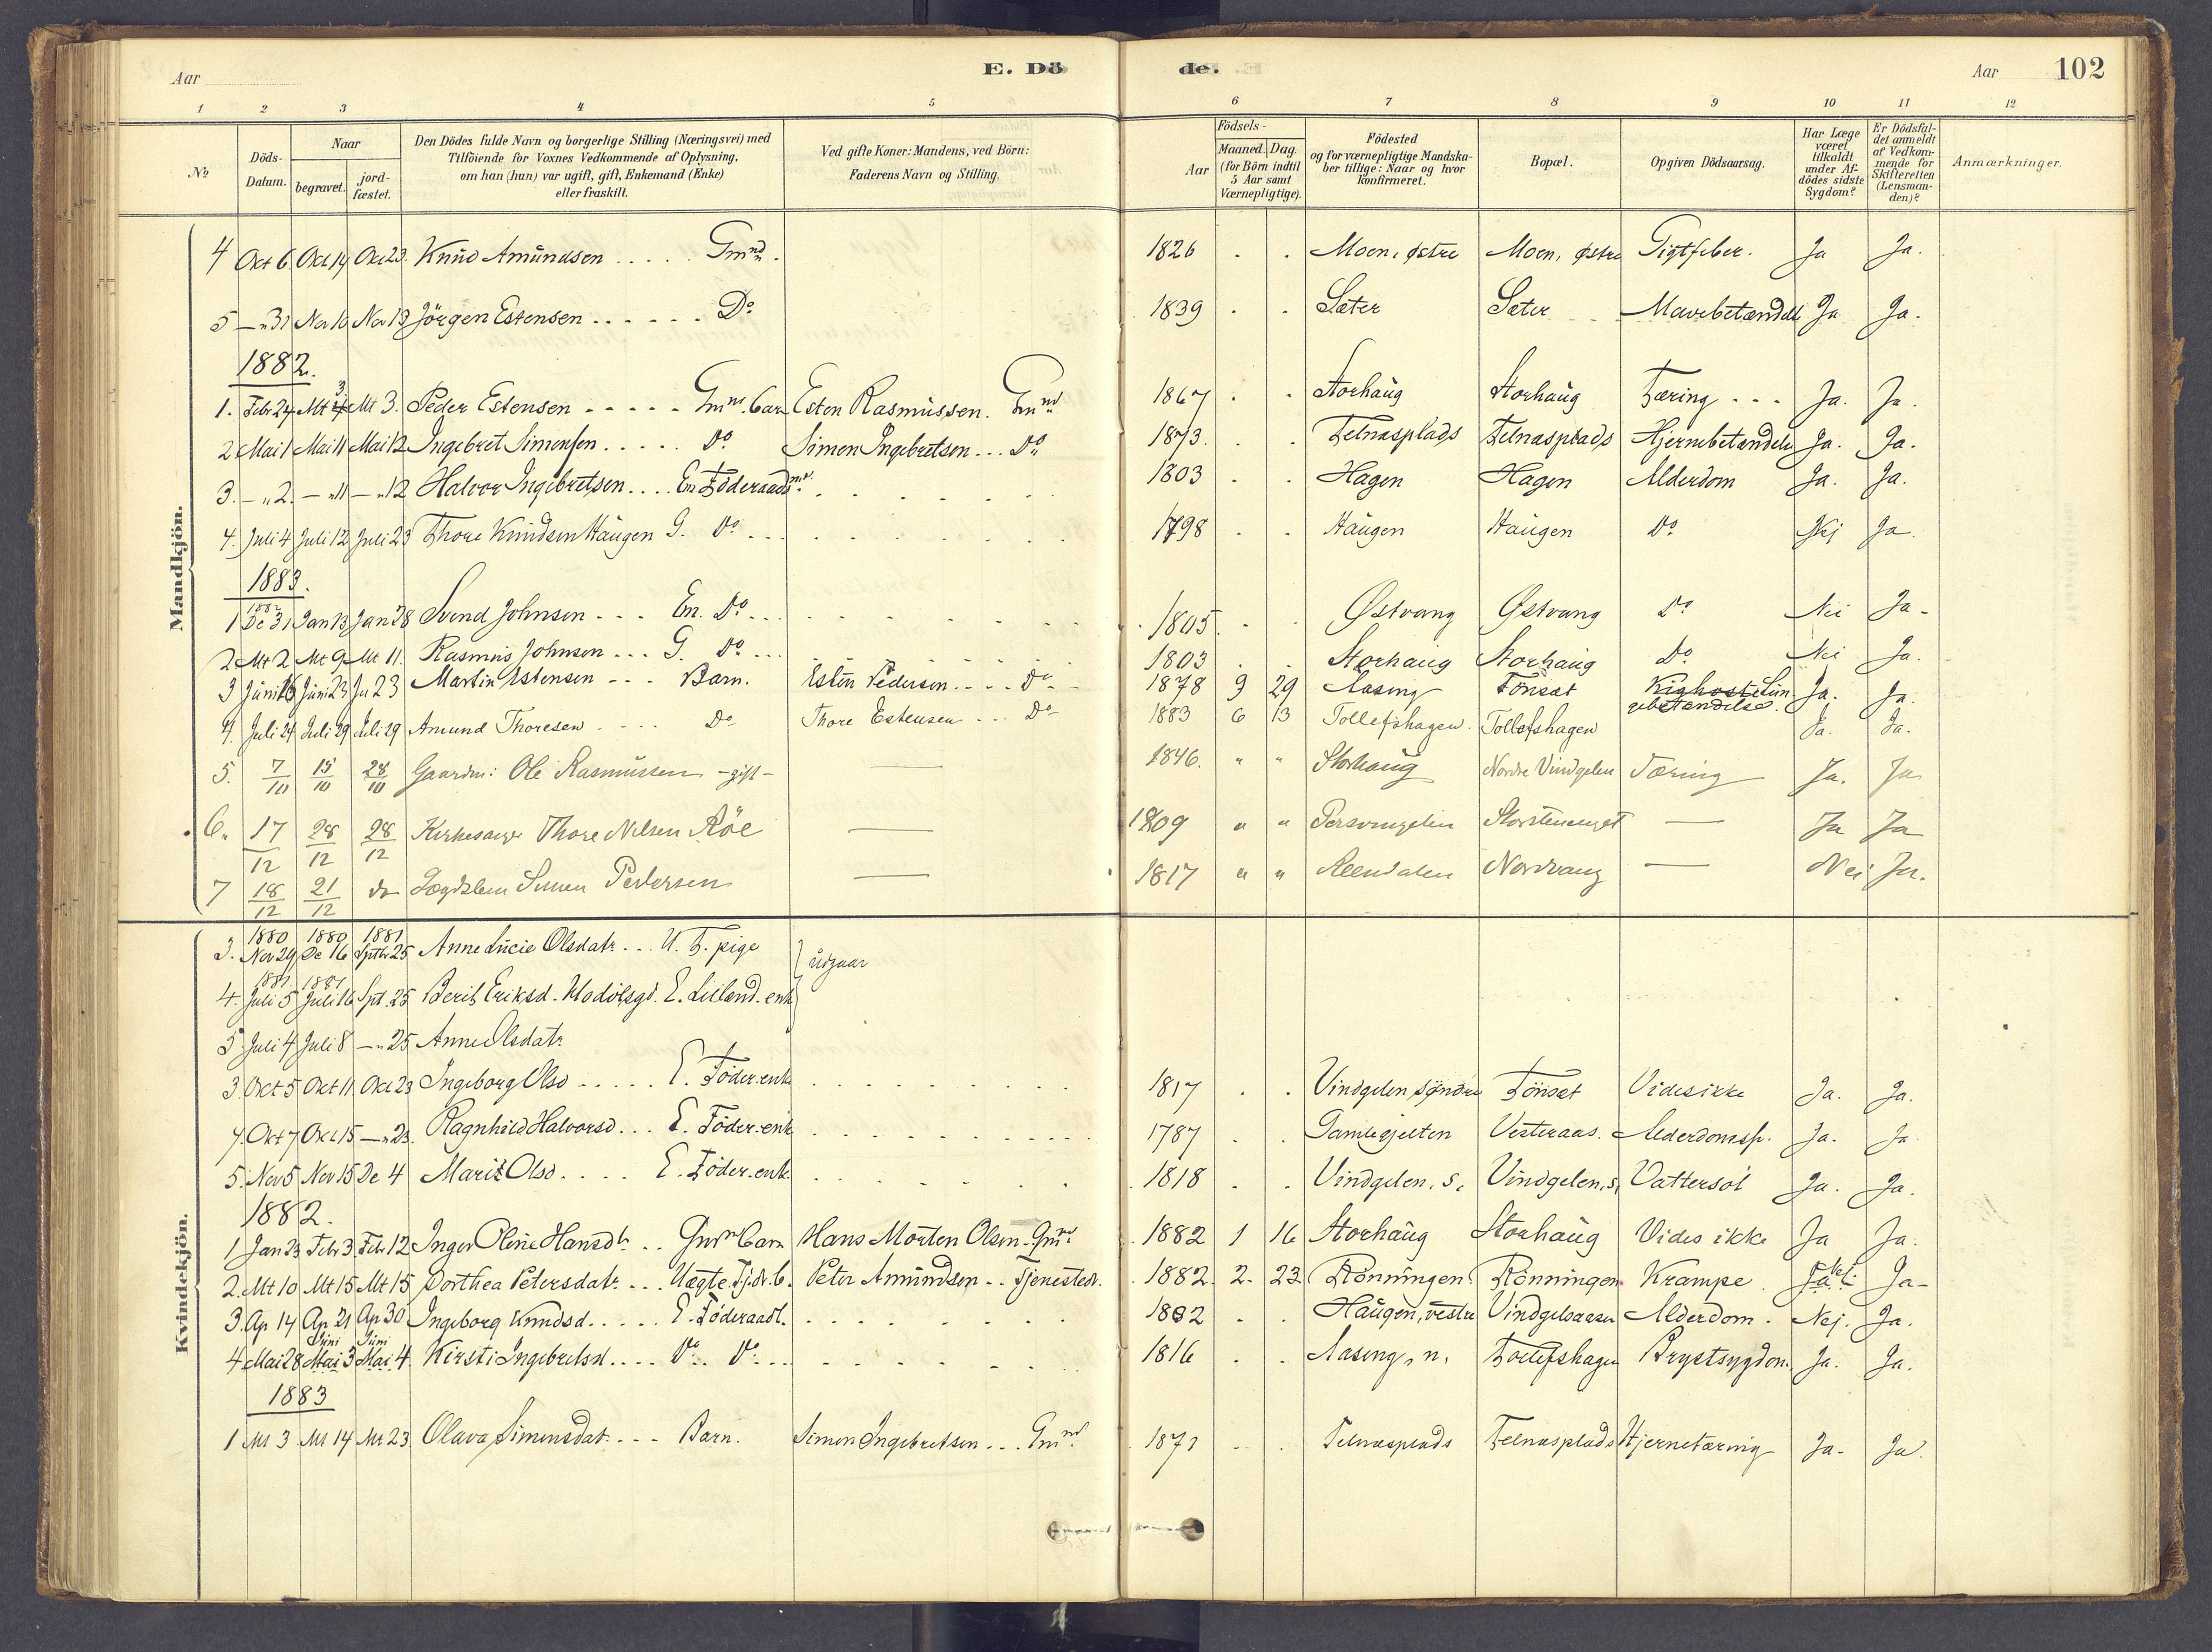 Aar E. Dö de. Aar 102
1 2 3 4 5 6 7 8 9 10 11 12
No
Döds-Datum.
Naar
begravet.
jord-fæstet.
Den Dödes fulde Navn og borgerlige Stilling (Næringsvei) med
Tilföiende for Voxnes Vedkommende af Oplysning,
om han (hun) var ugift, gift, Enkemand (Enke)
eller fraskilt.
Ved gifte Koner: Mandens, ved Börn:
Faderens Navn og Stilling.
Födsels-
Aar
Maaned. Dag.
(for Börn indtil
5 Aar samt
Værnepligtige).
Födested
og for værnepligtige Mandska-
ber tillige: Naar og hvor
konfirmeret.
Bopæl.
Opgiven Dödsaarsag.
Har Læge
været
tilkaldt
under Af-
dödes sidste
Sygdom?
Er Dödsfal-
det anmeldt
af Vedkom-
mende for
Skifteretten
(Lensman-
den)?
Anmærkninger.
Mandkjön.
4 Oct 6 Oct 14 Oct 23 Knud Amundsen . . . . . Gmnd. 1826 . . Moen, østre Moen, østre Gigtfeber. Ja Ja.
5 — „ 31 Nov 10 Nov 13 Jörgen Estensen . . . . . . Do 1839 . . Sæter Sæter Mavebetændelse Ja Ja.
1882.
1. Febr 24 Mt 3 Mt 3. Peder Estensen - - - - - Gmns. barn Esten Rasmussen. Gmnd 1867 . . Storhaug Storhaug Tæring - - - Ja. Ja.
2 Mai 1 Mai 11 Mai 12 Ingebret Simensen . . . . . Do Simen Ingebretsen . . . Do 1873. . . Telnæsplads Telnæsplads Hjernebetændelse Ja. Ja.
3. — „ 2. — „ 11 — „ 12 Halvor Ingebretsen . . . . Em Föderaadsm. 1803 . . Hagen Hagen Alderdom Ja. Ja.
4. Juli 4 Juli 12 Juli 23 Thore Knudsen Haugen G. Do . . . 1798 . . Haugen Haugen Do Nej Ja
1883.
1882
1 De 31 Jan 13 Jan 28 Svend Johnsen - - - Em. Do . . . 1805. . . Østvang Østvang Do Nei Ja -
2 Mt 2 Mt 9 Mt 11. Rasmus Johnsen . . . G. Do . . . 1803 . . Storhaug Storhaug Do Nei Ja.
3 Juni 16 Juni 23 Ju 23 Martin Estensen - - - Barn. Esten Pedersen . . . . Do 1878 9 29 Aaseng Tönset Kighoste Lun-
gebetændelse. Ja. Ja.
4. Juli 24 Juli 29 Juli 29 Amund Thoresen . - - - Do Thore Estensen . . . Do 1883 6 13 Tollefshagen. Tollefshagen Ja. Ja.
5. 7/10 15/10 28/10 Gaardm: Ole Rasmussen - gift - — 1846. " " Storhaug Nordre Vindgelen Tæring Ja. Ja
6. 17/12 28/12 28/12 Kirkesanger Thore Nilsen Röe — 1809 " " Storstenenget — Ja Ja
7 18/12 21/12 do Lægdslem Simen Pedersen — 1817 " " Rendalen Nordvang — Nei Ja.
Kvindekjön.
1880 1880 1881
3. Nov 29 De 16 Sptbr 25 Anne Lucie Olsdatr. . . U. T. pige } udgaar
1881. 1881
4. Juli 5 Juli 16 Spt. 25 Berit Eriksd. E. enk
5 Juli 4 Juli 8 — „ 25 Anne Olsdatr
3 Oct 5 Oct 11. Oct 23 Ingeborg Olsd . . . . . E. Föder.enk. 1817 . . Vindgelen söndre Tönset Vides ikke Ja. Ja.
4. Oct 7 Oct 15 — „ 23. Ragnhild Halvorsd . . . E. Föder.enk 1787 . . Gamlegjelten Vesteraas. Alderdomssv. Ja. Ja
5. Nov 5 Nov 15 De 4 Marit Olsd . . . . E. Föder.enk. 1818 . . Vindgelen, s. Vindgelen, s. Vattersot Ja. Ja.
1882.
1 Jan 23 Febr 3 Febr 12 Inger Oline Hansdtr. . . Gmnbarn Hans Morten Olsen - Gmnd. 1882 1 16 Storhaug Storhaug Vides ikke Ja Ja.
2. Mt 10 Mt 15 Mt 15 Dorthea Petersdatr. . . Uægte. Tj.dr. b. Peter Amundsen . . Tjenestedr. 1882. 2. 23. Rönningen Rönningen Krampe Ja -
3. Ap 14 Ap 21 Ap 30 Ingeborg Knudsd. . . . . E. Föderaadk. 1802 . . Haugen, vestre Vindgelsaasen Alderdom. Nej. Ja.
Juni Juni
4 Mai 28 Mai 3 Mai 4. Kirsti Ingebretsd. . . . Do . . Do . . . 1816 . . Aaseng, n. Tollefshagen Brystsygdom. Ja. Ja.
1883
1 Mt 3 Mt 14 Mt 23. Olava Simensdat. - - - Barn. Simen Ingebretsen . . . Gmnd. 1871 Telnæsplads Telnæsplads Hjernetæring Ja - Ja